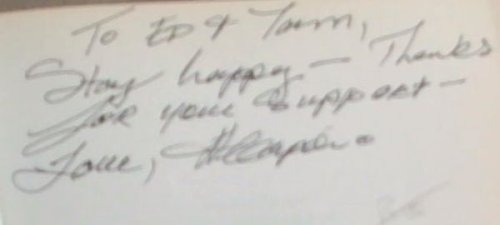 To ED &
Stay happy — Thanks
for your support —
Love,